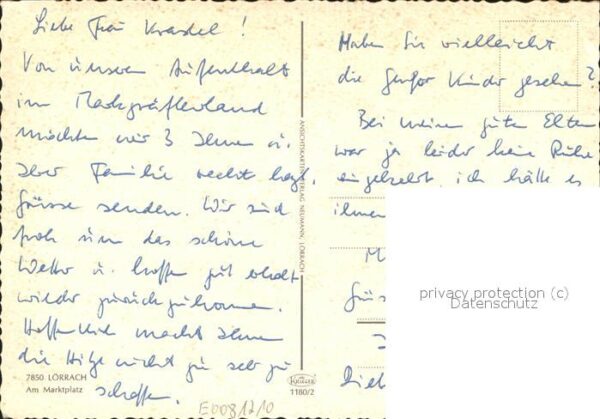 Liebe Frau Krastel!
Von unserem Aufenthalt
im Markgräflerland
möchten wir 3 Ihnen u.
Ihrer Familie recht herzl.
Grüsse senden. Wir sind
froh um das schöne
Wetter u. hoffen gut erholt
wieder zurückzukommen.
Hoffentlich macht Ihnen
die Hitze nicht zu sehr zu
schaffen.
7850 LÖRRACH
Am Marktplatz
E0081210
ANSICHTSKARTENVERLAG NEUMANN, LÖRRACH
Krüger
1180/2
Haben Sie vielleicht
die Genfer Kinder gesehen?
Bei meinen guten Eltern
war ja leider keine Ruhe
eingekehrt, ich hätte es
ihnen
privacy protection (c)
Datenschutz